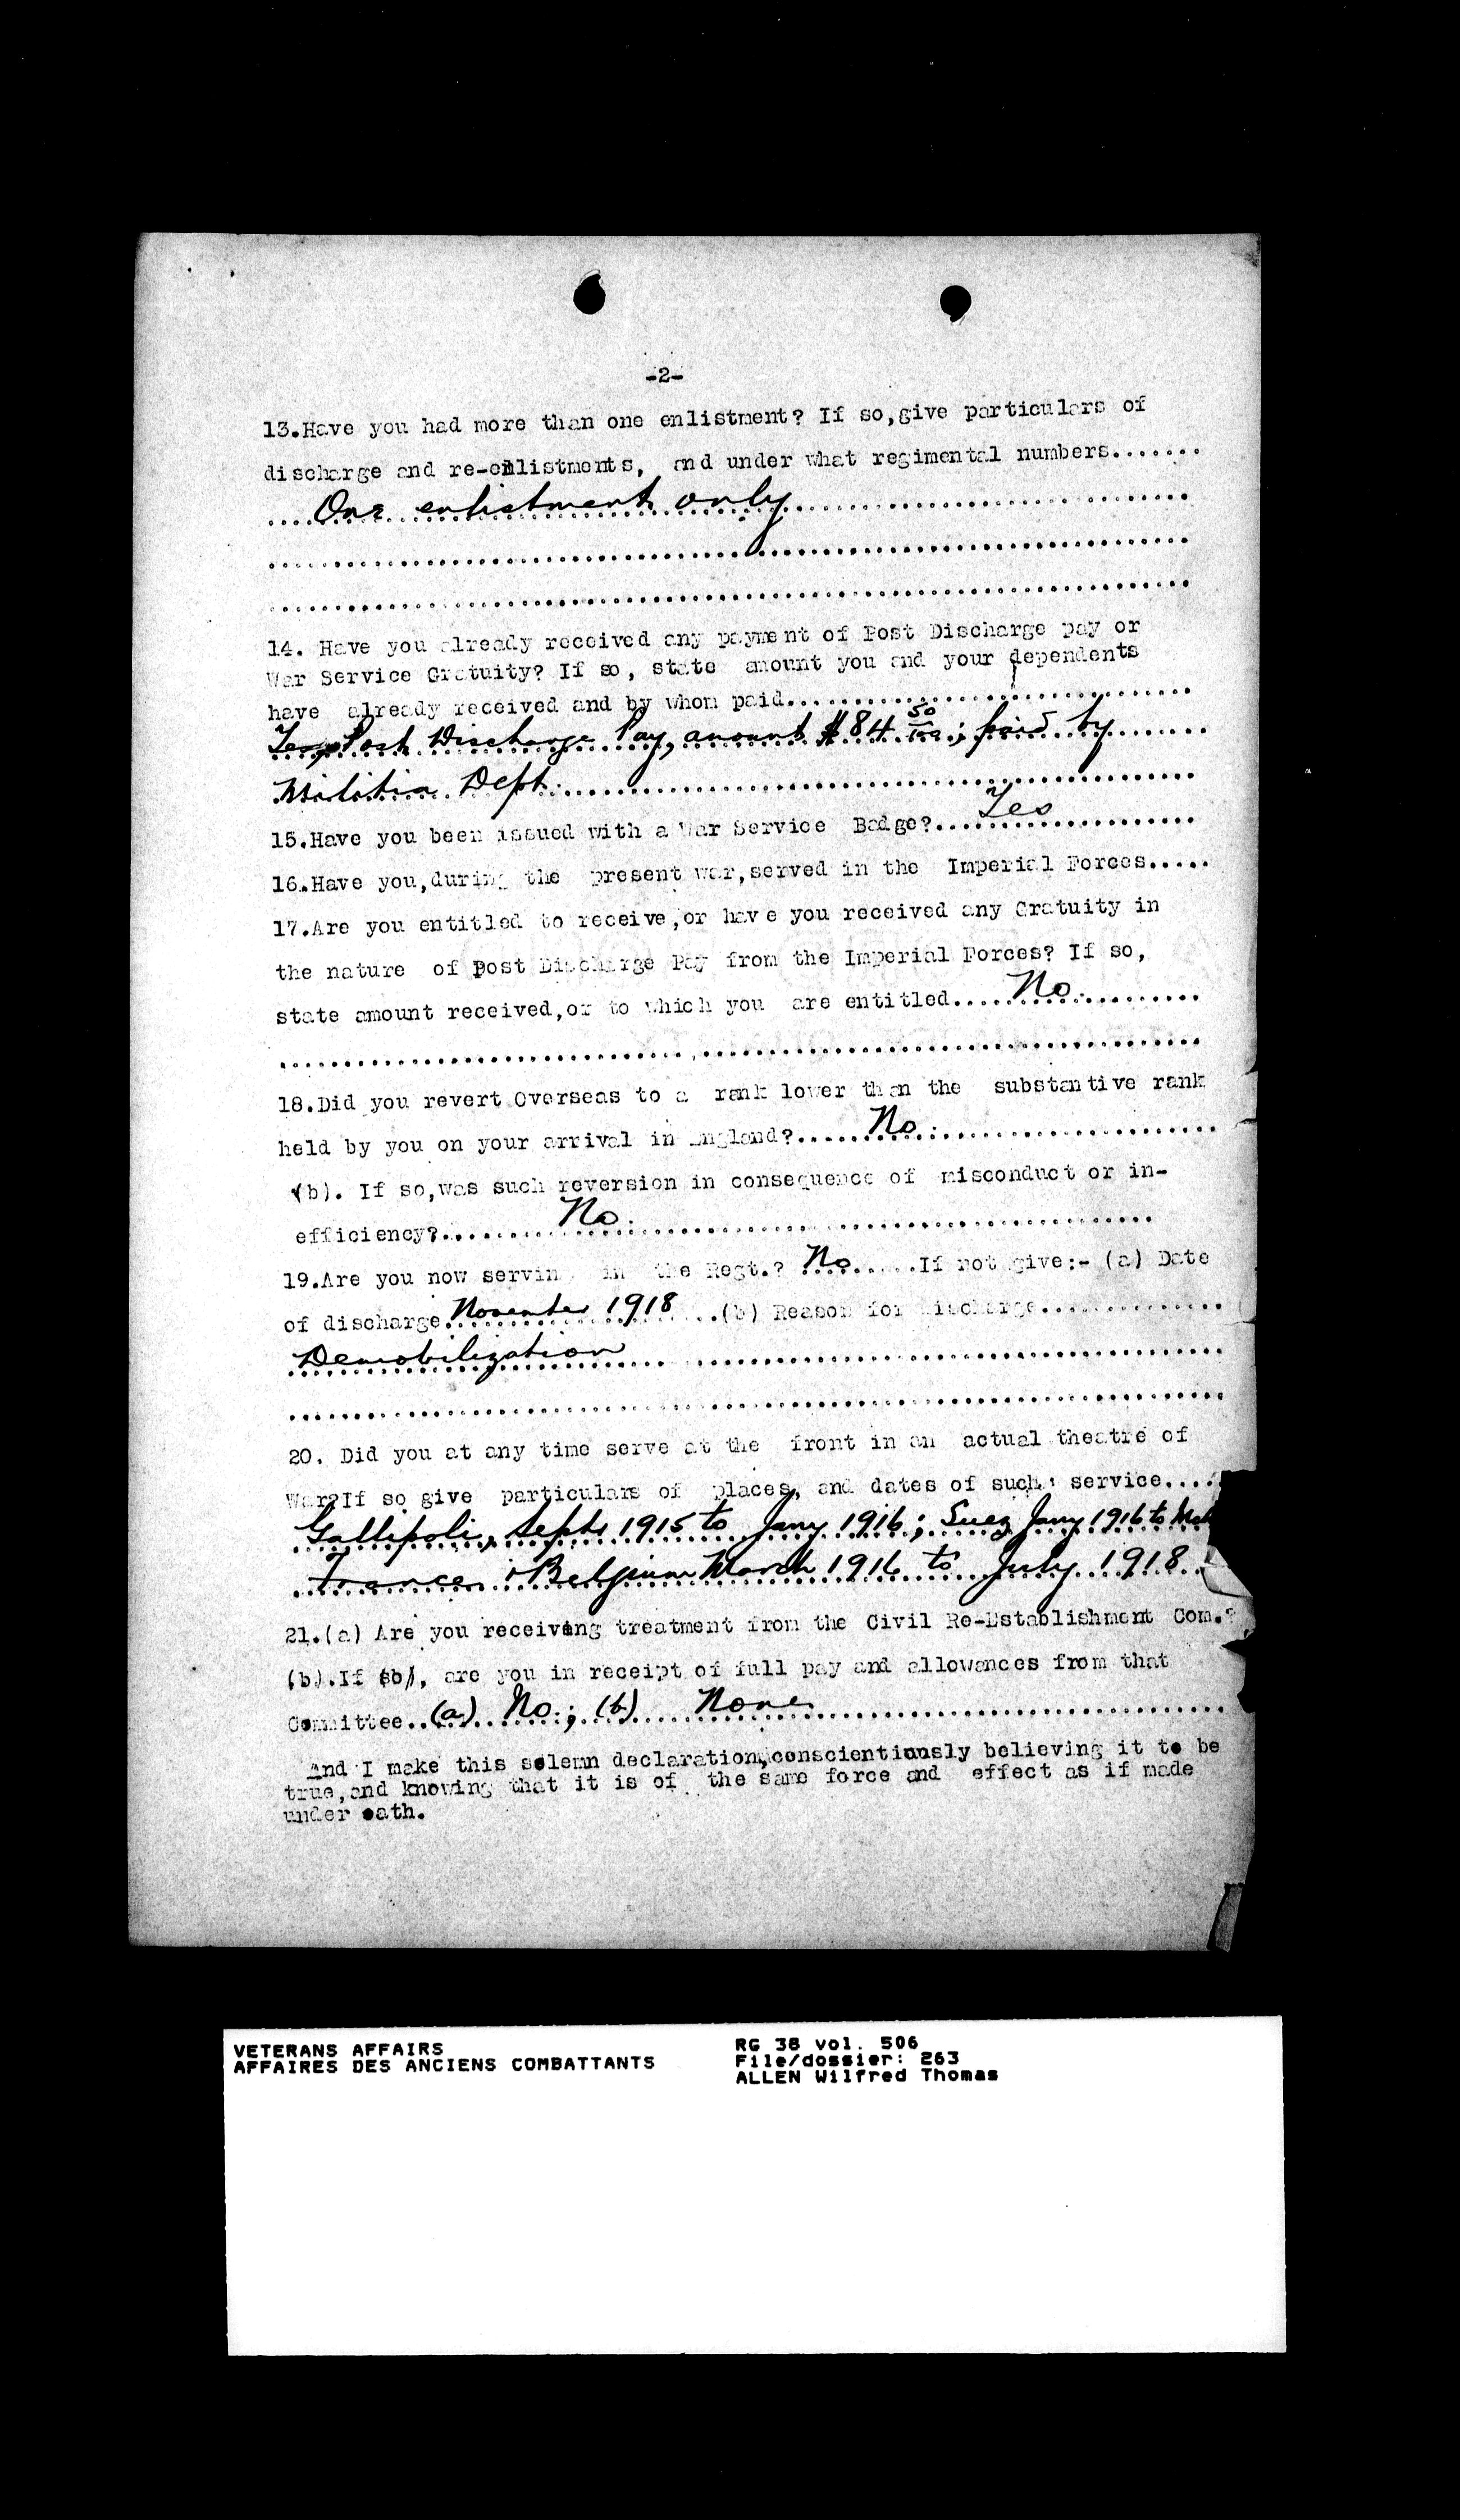 -2-
13.Have you had more than one enlistment? If so,give particulars of
discharge and re-enlistments, and under what regimental numbers.......
One enlistment only
14. Have you already received any payment of Post Discharge pay or
War Service Gratuity? If so, state amount you and your dependents
have already received and by whom paid...............................
Yes, Post Discharge Pay, amount $84 50/100; paid by
Militia Dept.
15.Have you been issued with a War Service Badge?....Yes
16.Have you,during the present war,served in the Imperial Forces.....
17.Are you entitled to receive,or have you received any Gratuity in
the nature of Post Discharge Pay from the Imperial Forces? If so,
state amount received,or to which you are entitled....No.
18.Did you revert Overseas to a rank lower than the substantive rank
held by you on your arrival in England?....No.
(b). If so,was such reversion in consequence of misconduct or in-
efficiency?....No.
19.Are you now serving in the Regt.? No......If not give:- (a) Date
of discharge November 1918 ..(b) Reason for discharge..............
Demobilization
20. Did you at any time serve at the front in an actual theatre of
War?If so give particulars of places, and dates of such service....
Gallipoli, Sept. 1915 to Jany 1916; Suez Jany 1916 to Mch
France & Belgium March 1916 to July 1918.
21.(a) Are you receiving treatment from the Civil Re-Establishment Com.?
(b).If (b), are you in receipt of full pay and allowances from that
Committee..(a) No.; (b) None
And I make this solemn declaration,conscientiously believing it to be
true,and knowing that it is of the same force and effect as if made
under oath.
VETERANS AFFAIRS
AFFAIRES DES ANCIENS COMBATTANTS
RG 38 vol. 506
File/dossier: 263
ALLEN Wilfred Thomas